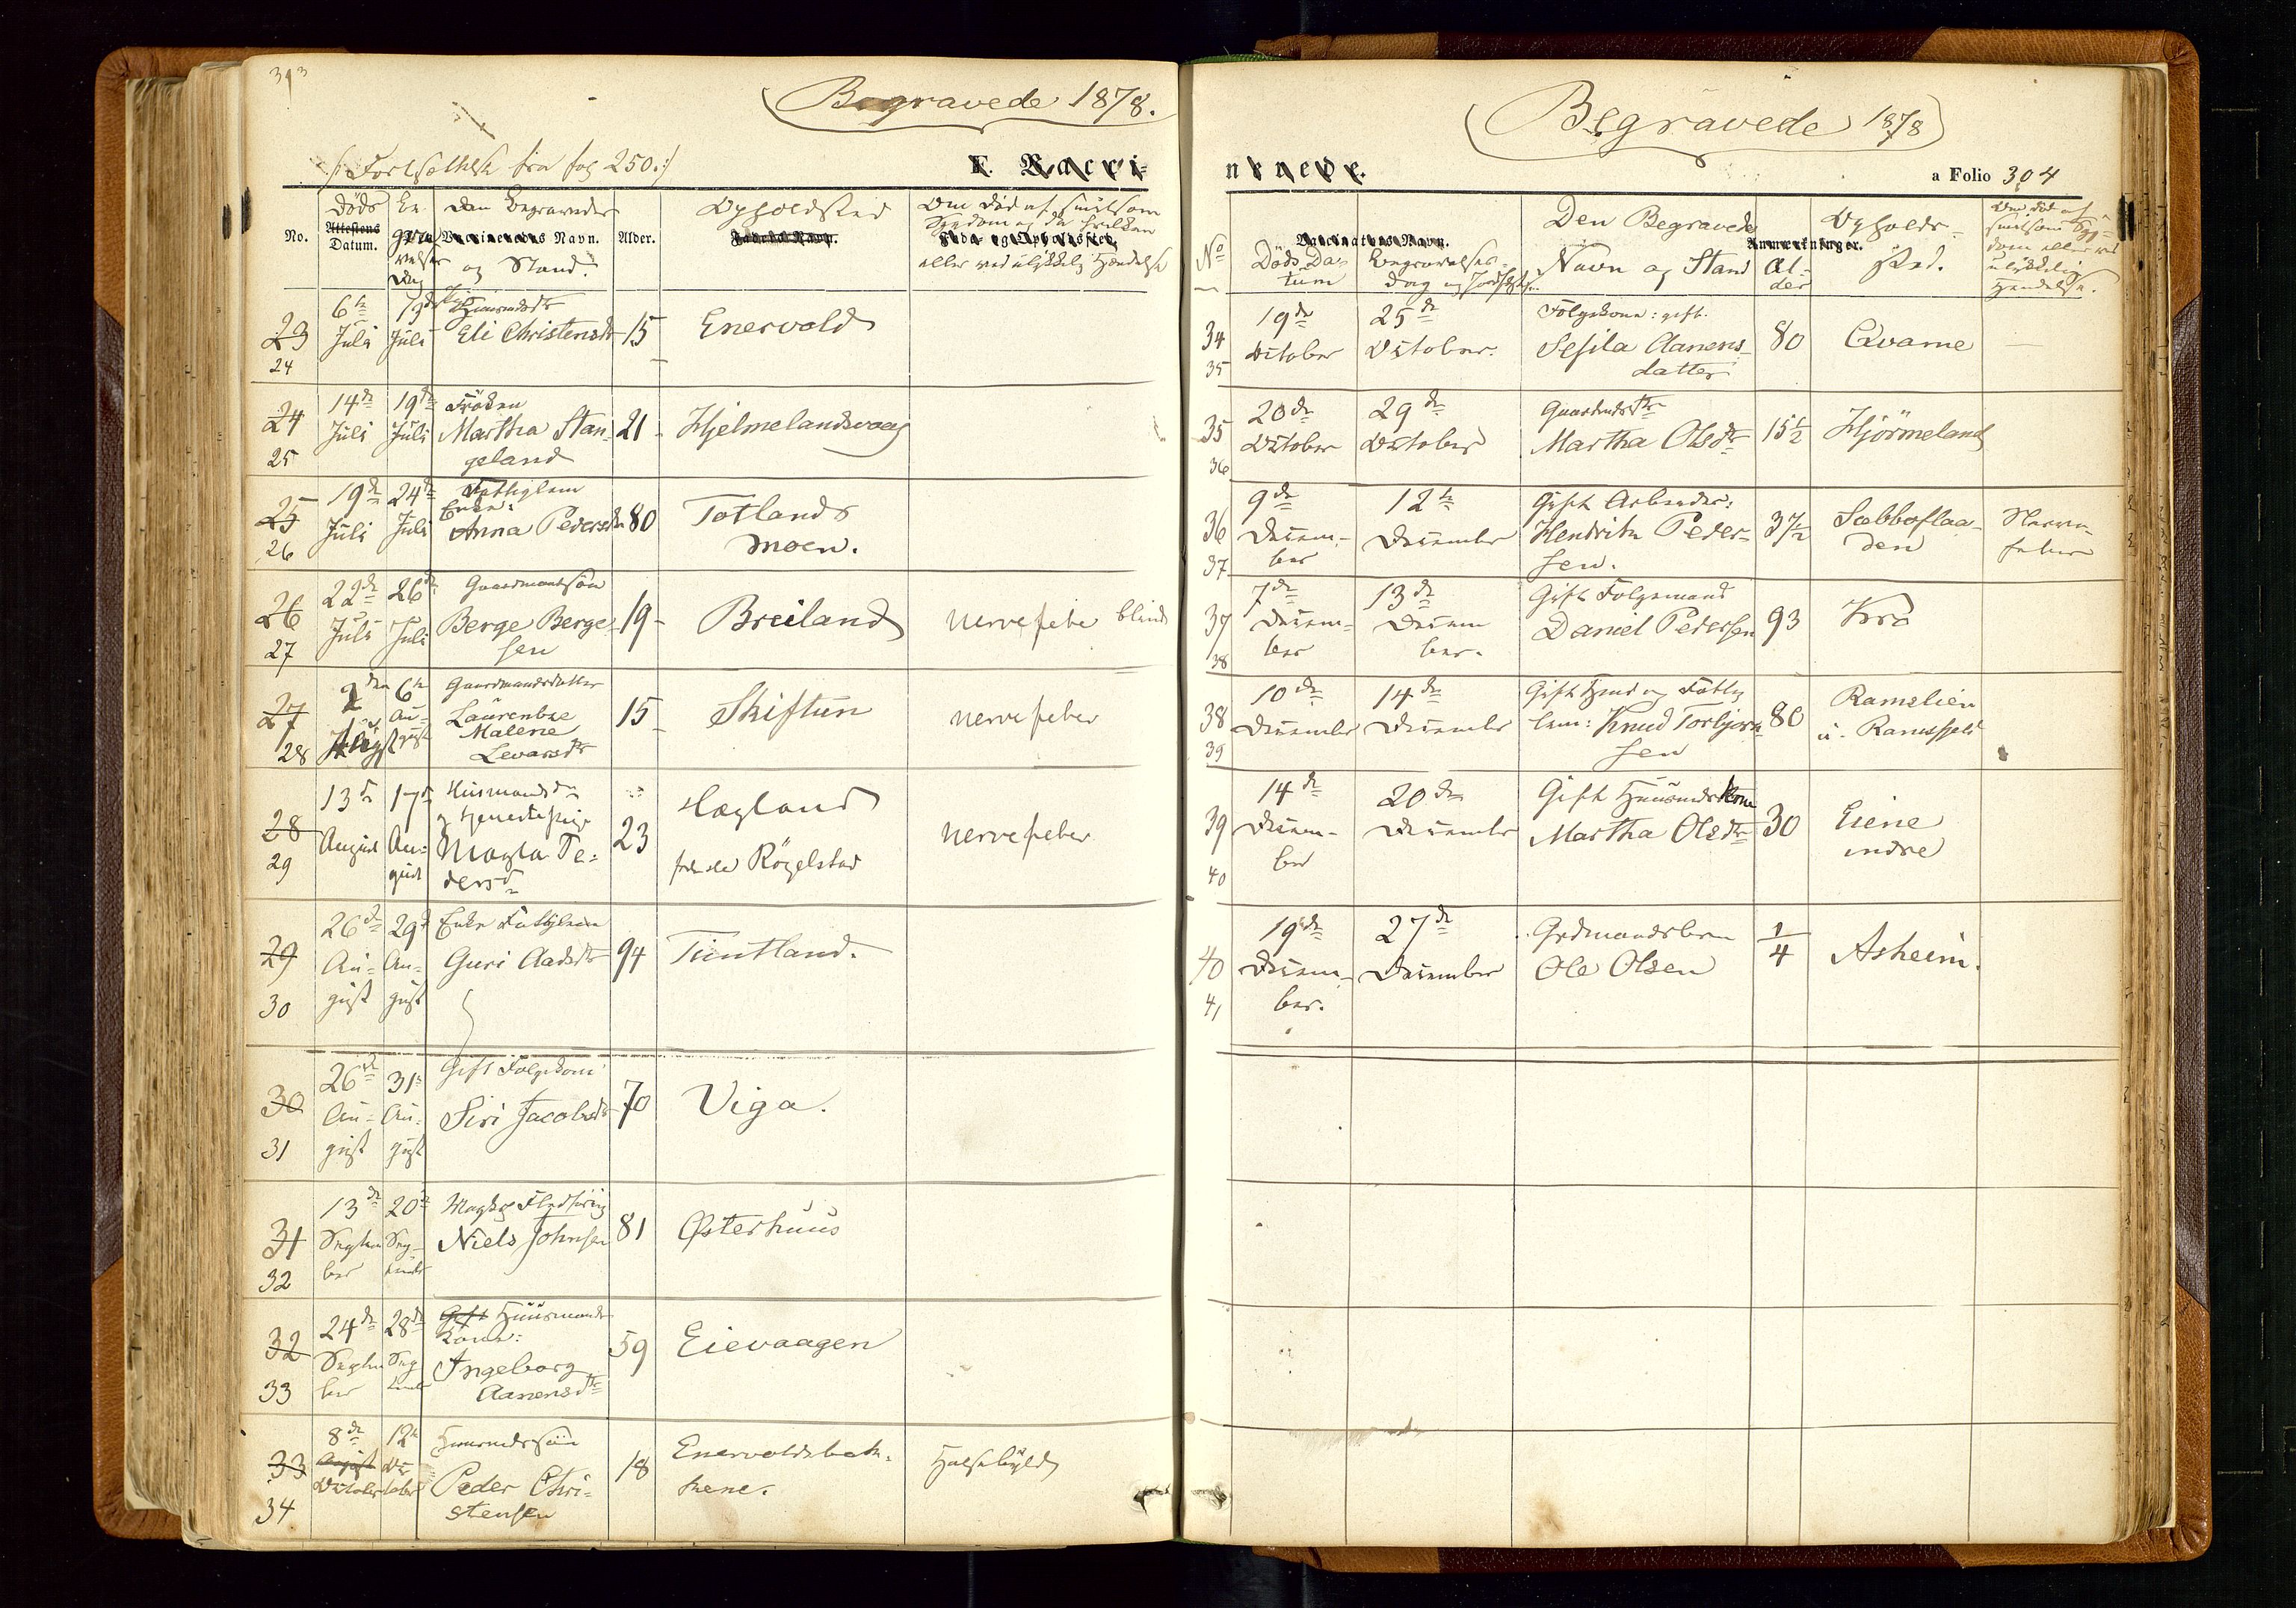 303
Begravede 1878.
(: Fortsættelse fra fol 250 :)
E. Vacci-
Döds
Attestens
Datum.
Be-
grav
velses
Dag
Den Begravedes
Vaccinerendes Navn.
og Stand.
No.
Alder.
Opholdsted
Faderens Navn.
Om Död af smitsom
Sygdom og da hvilken
Føde- og Opholdssted.
eller ved ulykkelig Hændelse
23
24
6te
Juli
13de
Juli
Huusmdsdtr
Eli Christensdtr
15
Enervold
24
25
14de
Juli
19de
Juli
Fröken
Martha Stan-
geland
21
Hjelmelandsvaag
25
26
19de
Juli
24de
Juli
Fattiglem
Enke:
Anna Pedersdtr
80
Totlands
moen.
26
27
22de
Juli
26de
Juli
Gaardmandssön
Berge Berge-
sen
19
Breiland
nervefeber blind
27
28
2den
August
6te
Au-
gust
Gaardmandsdatter
Laurentze
Malene
Levarsdtr
15
Skiftun
nervefeber
28
29
13de
August
17de
Au-
gust
Huusmandsdtr
og tjenestepige
Magla Pe-
dersdtr
23
Hagland
Rögelstad
nervefeber
29
30
26de
Au-
gust
29de
Au-
gust
Enke Fattiglem
Guri Aadsdtr
94
Tuntland.
30
31
26de
Au-
gust
31te
Au-
gust
Gift Folgekone
Siri Jacobsdtr
70
Viga.
31
32
13de
Septem
ber
20de
Sep-
tember
Niels Johnsen
81
Østerhuus
32
33
24de
Septem
ber
28de
Sep
tember
Gift Huusmands
Kone:
Ingeborg
Aanensdtr
59
Eievaagen
33
34
8de
August
October
12te
Oc
tober
Huusmdssön
Peder Chri-
stensen
18
Enervoldsbak-
kene.
Halsebyld
Begravede 1878
nerede.
a Folio 304
No
Vaccinateurs Navn.
Döds Da-
tum
Begravelses-
Dag og Jordfæst.
Den Begravede
Navn og Stand
Anmærkninger.
Al-
der
Opholds-
sted.
Om död af
smitsom Syg-
dom eller ved
ulykkelig
Hændelse.
34
35
19de
October
25de
October.
Folgekone: gift.
Sesila Aanens-
datter
80
Qvame
—
35
36
20de
October
29de
October
Gaardmdsdtr
Martha Olsdtr
15½
Hjörmeland
36
37
9de
Decem-
ber
12te
December
Gift Arbeider:
Hendrik Peder-
sen.
37½
Sabbøflaa-
den
Nerve-
feber
37
38
7de
Decem-
ber
13de
Decem
ber.
Gift Folgemand
Daniel Pedersen
93
Kro
38
39
10de
December
14de
December
Gift Hmd og Fattig
lem: Knud Torbjørn-
sen
80
Ramslien
u. Ramsfjeld
39
40
14de
Decem-
ber
20de
December
Gift Huusmdskone
Martha Olsdtr
30
Eiene
indre
40
41
19de
Decem-
ber.
27de
December
Grdmandsbarn
Ole Olsen
1/4
Asheim.